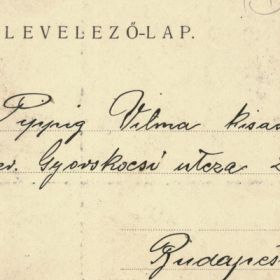 LEVELEZŐ-LAP.
Tippig Vilma kisas
er. Gyorskocsi utcza 2
Budapes